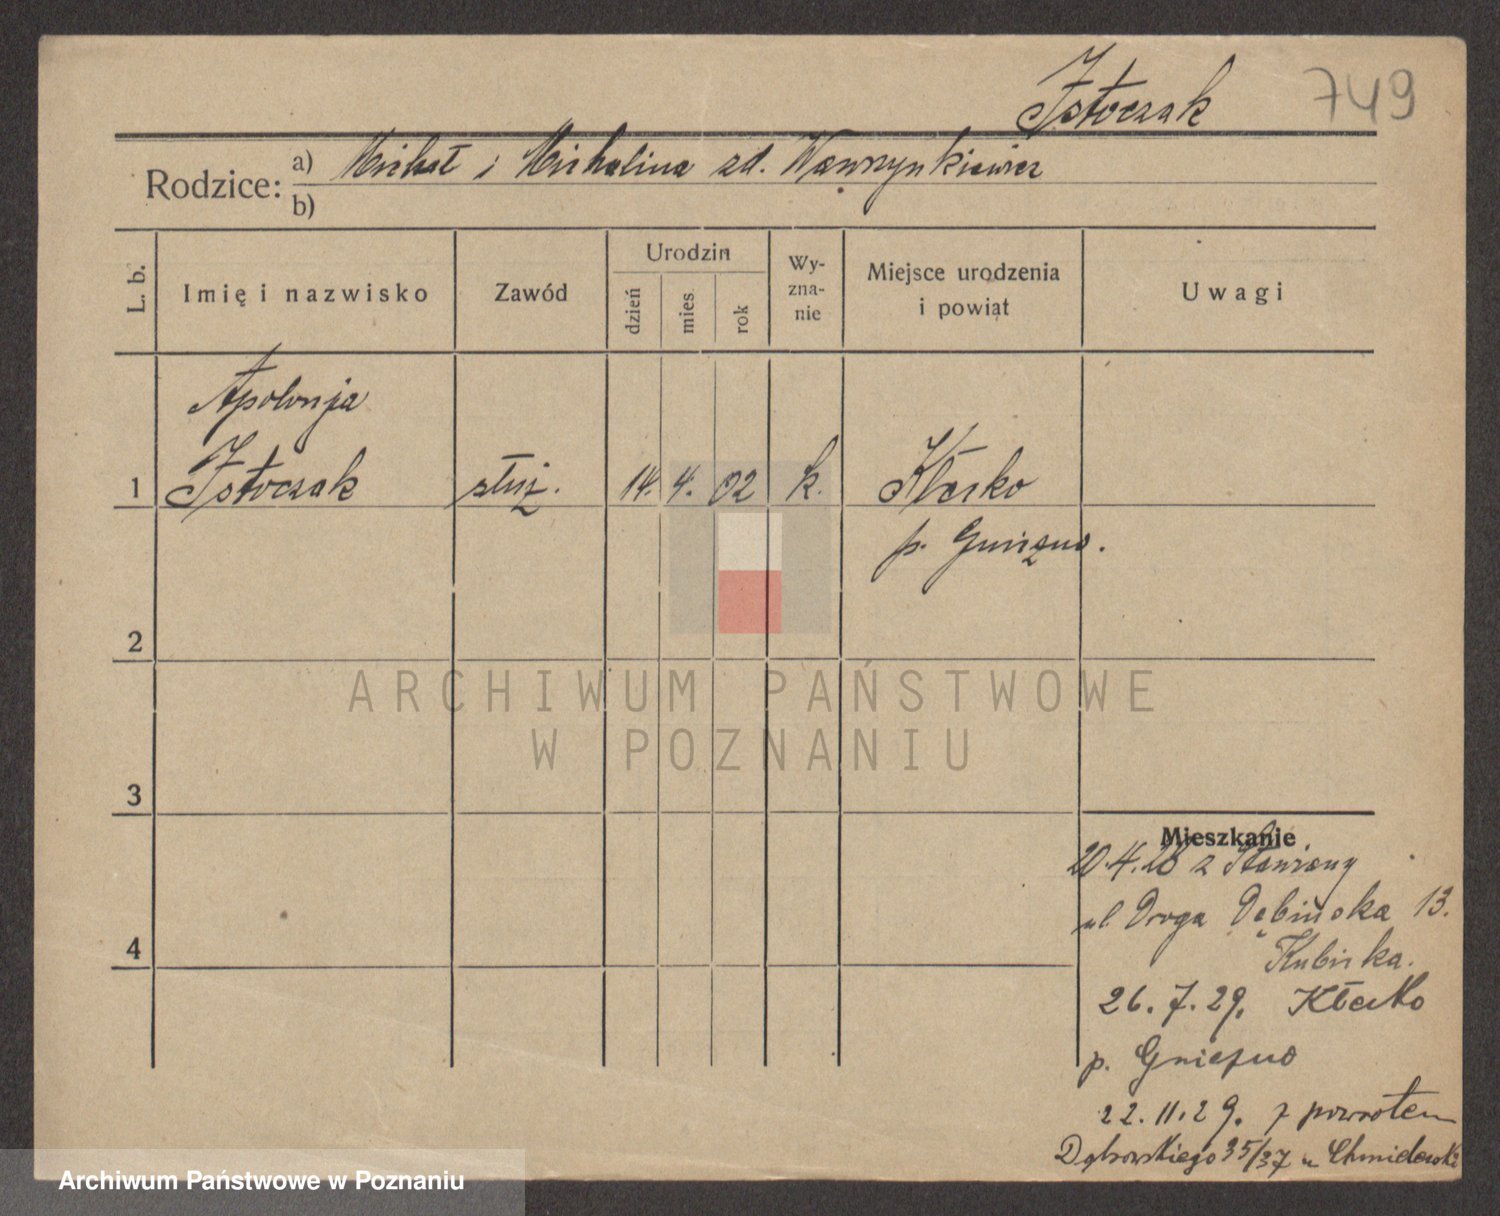 Jstoczak 749
Rodzice: a) Michał i Michalina zd. Wawrzynkiewicz
b)
L. b. Imię i nazwisko Zawód Urodzin dzień mies rok Wy-zna-nie Miejsce urodzenia i powiat Uwagi
Apolonja
1 Jstoczak służ. 14. 4. 02 k. Kłecko
p. Gniezno.
2
ARCHIWUM PAŃSTWOWE
W POZNANIU
3
Mieszkanie
20.4.28 z
ul. Droga Dębińska 13.
Kubicka.
4
26.7.29. Kłecko
p. Gniezno
22.11.29. z powrotem
Dąbrowskiego 35/37 u
Archiwum Państwowe w Poznaniu